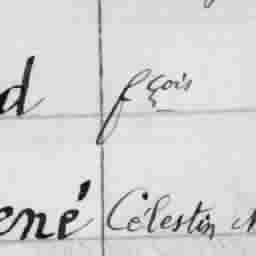 d fçois
ené Célestin